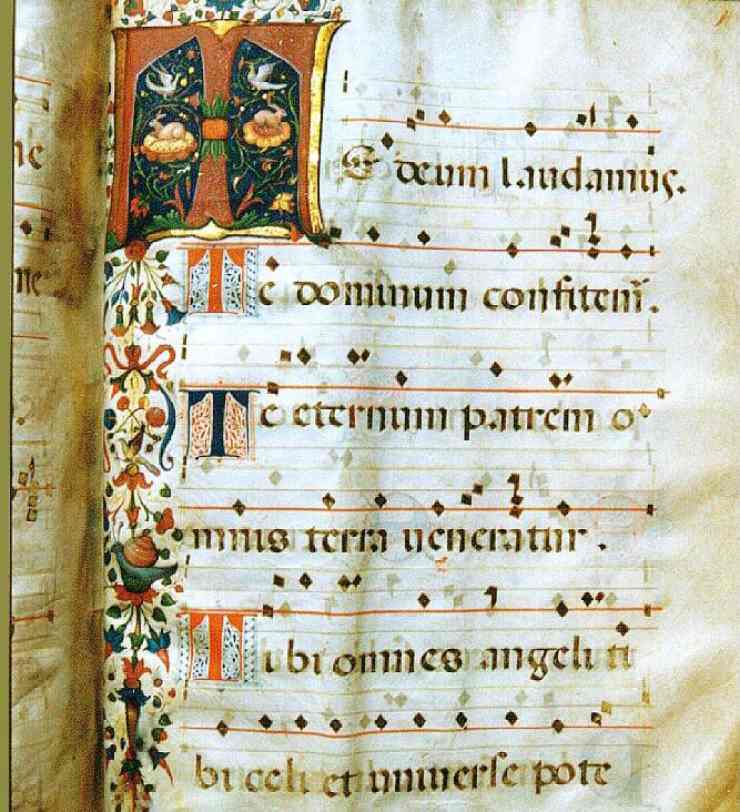 Te deum laudamus.
Te dominum confitem̃.
Te eternum patrem o
mnis terra ueneratur .
Tibi omnes angeli ti
bi celi et uniuerse pote